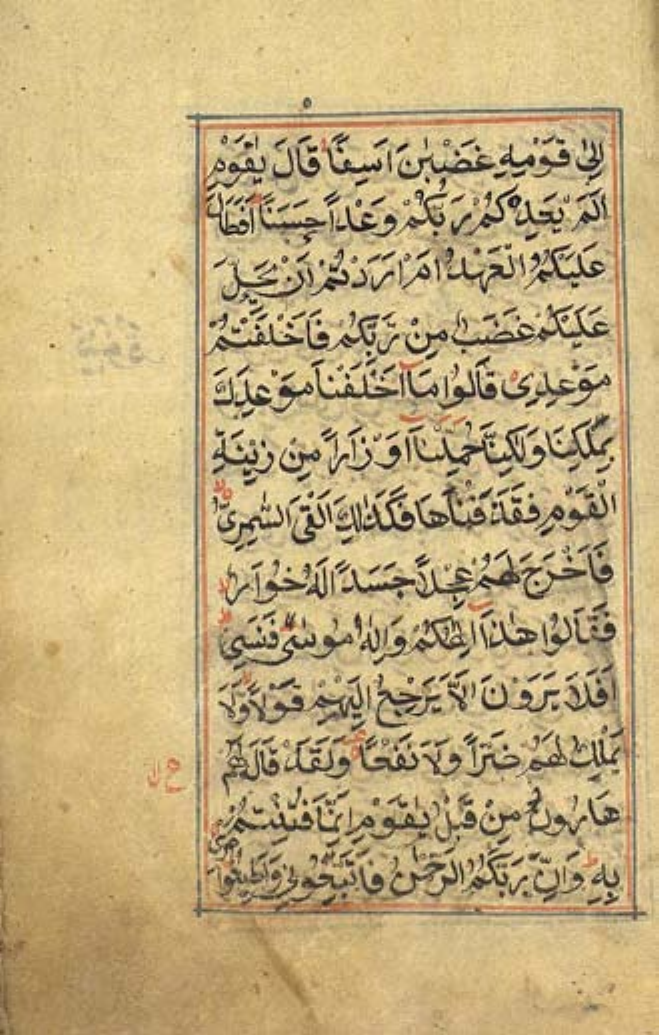 إِلَىٰ قَوْمِهِ غَضْبٰنَ اَسِفًا قَالَ يٰقَوْمِ
اَلَمْ يَعِدْكُمْ رَبُّكُمْ وَعْداً حَسَناً اَفَطَالَ
عَلَيْكُمُ الْعَهْدُ اَمْ اَرَدْتُمْ اَنْ يَحِلَّ
عَلَيْكُمْ غَضَبٌ مِنْ رَبِّكُمْ فَاَخْلَفْتُمْ
مَوْعِدِىْ قَالُوا مَا اَخْلَفْنَا مَوْعِدَكَ
بِمَلْكِنَا وَلٰكِنَّا حُمِّلْنَا اَوْزَاراً مِنْ زِيْنَةِ
الْقَوْمِ فَقَذَفْنَاهَا فَكَذٰلِكَ اَلْقَى السَّامِرِىُّ
فَاَخْرَجَ لَهُمْ عِجْلاً جَسَداً لَهُ خُوَارٌ
فَقَالُوا هٰذَا اِلٰهُكُمْ وَاِلٰهُ مُوسٰى فَنَسِىَ
اَفَلَا يَرَوْنَ اَلَّا يَرْجِعُ اِلَيْهِمْ قَوْلاً وَلَا
يَمْلِكُ لَهُمْ ضَرّاً وَلَا نَفْعًا وَلَقَدْ قَالَ لَهُمْ
هَارُونُ مِنْ قَبْلُ يٰقَوْمِ اِنَّمَا فُتِنْتُمْ
بِهِ وَاِنَّ رَبَّكُمُ الرَّحْمٰنُ فَاتَّبِعُونِى وَاَطِيعُوا
اَمْرِى